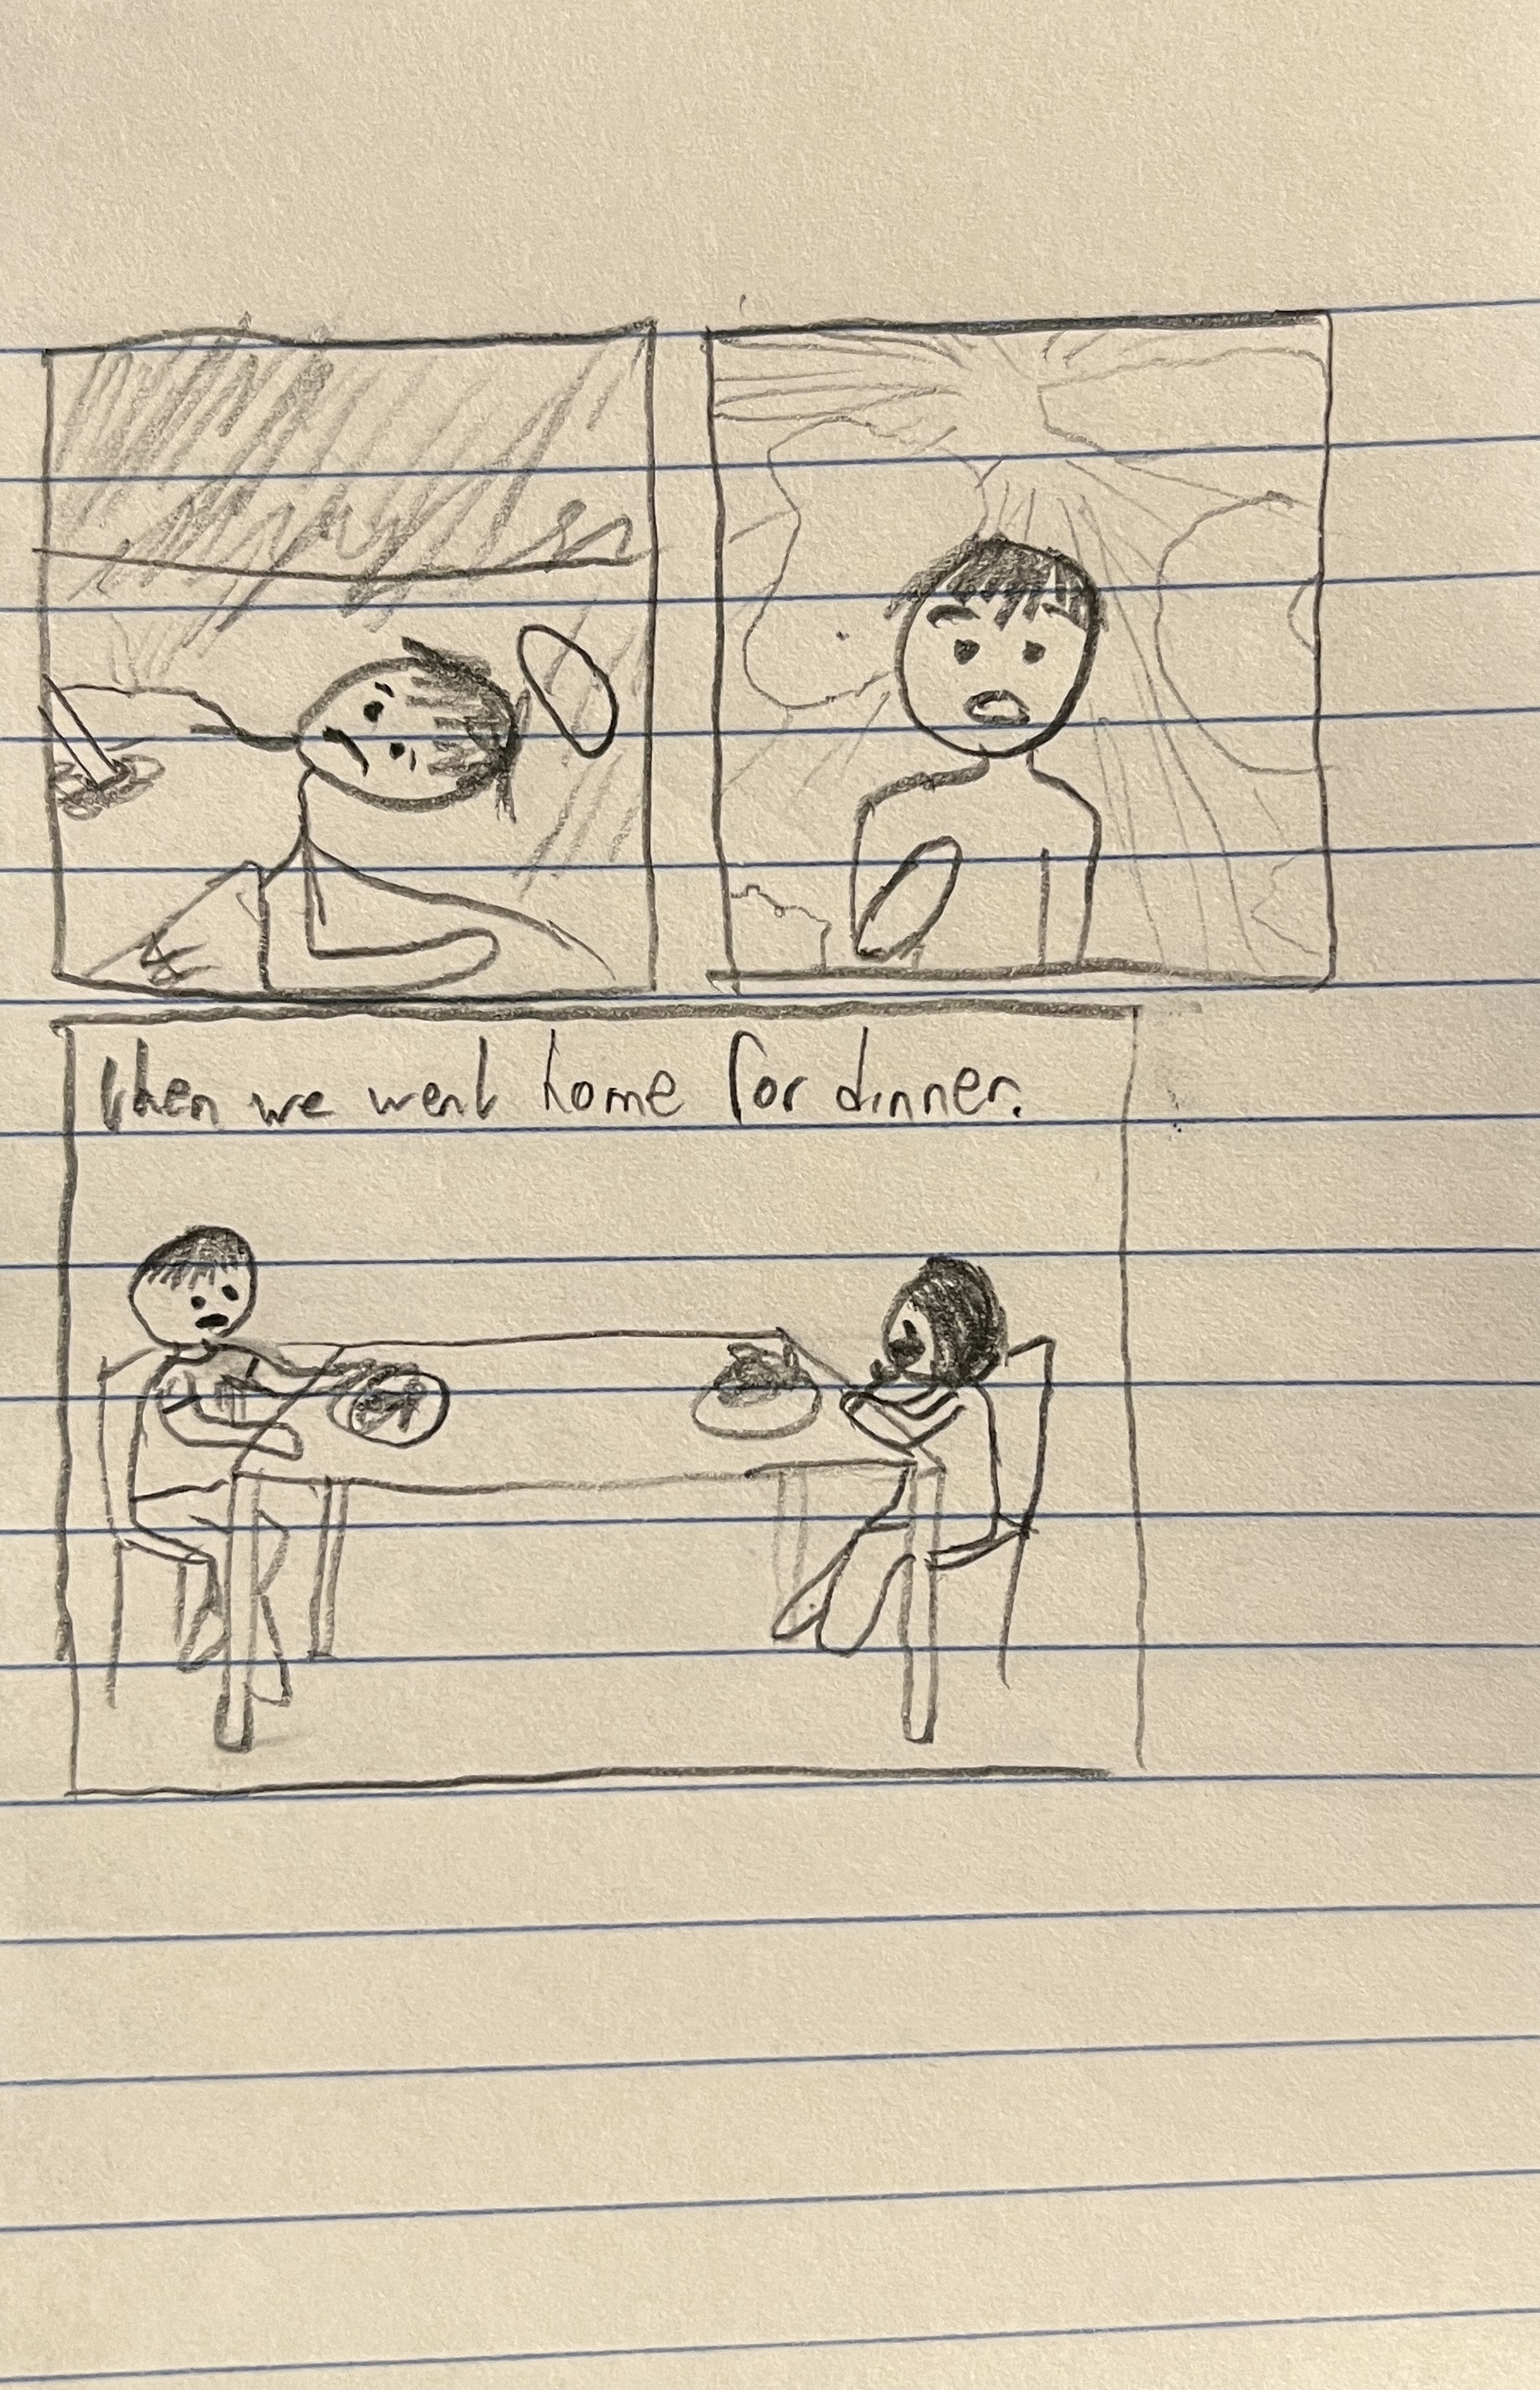 then we went home for dinner.